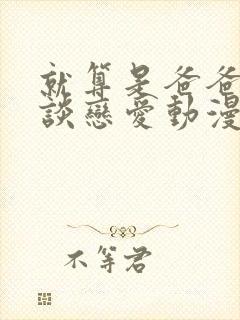 就算是爸爸
談戀愛動漫
不等君